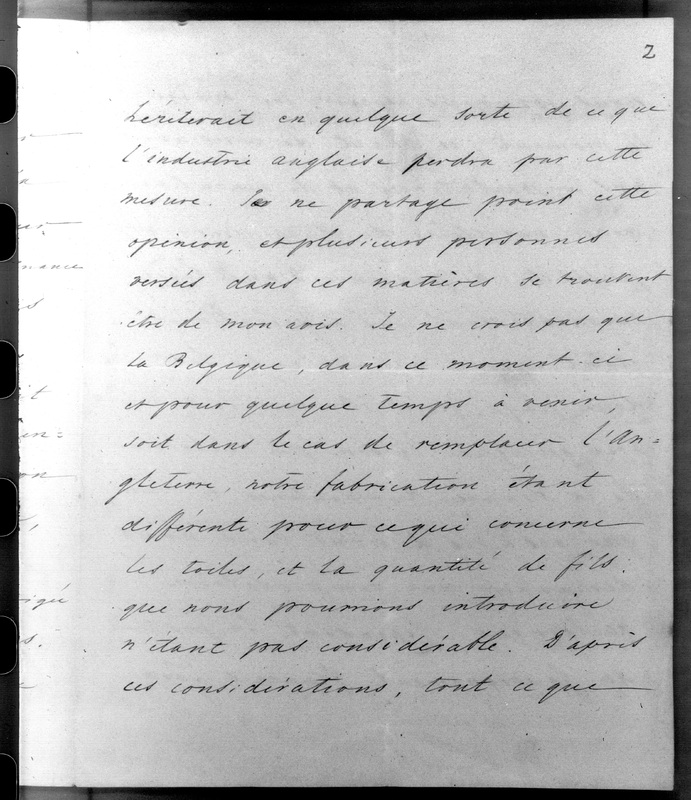 2
hériterait en quelque sorte de ce que
l'industrie anglaise perdra par cette
mesure. Je ne partage point cette
opinion, et plusieurs personnes
versées dans ces matières se trouvent
être de mon avis. Je ne crois pas que
la Belgique, dans ce moment-ci
et pour quelque temps à venir,
soit dans le cas de remplacer l'An=
gleterre, notre fabrication étant
différente pour ce qui concerne
les toiles, et la quantité de fils
que nous pourrions introduire
n'étant pas considérable. D'après
ces considérations, tout ce que